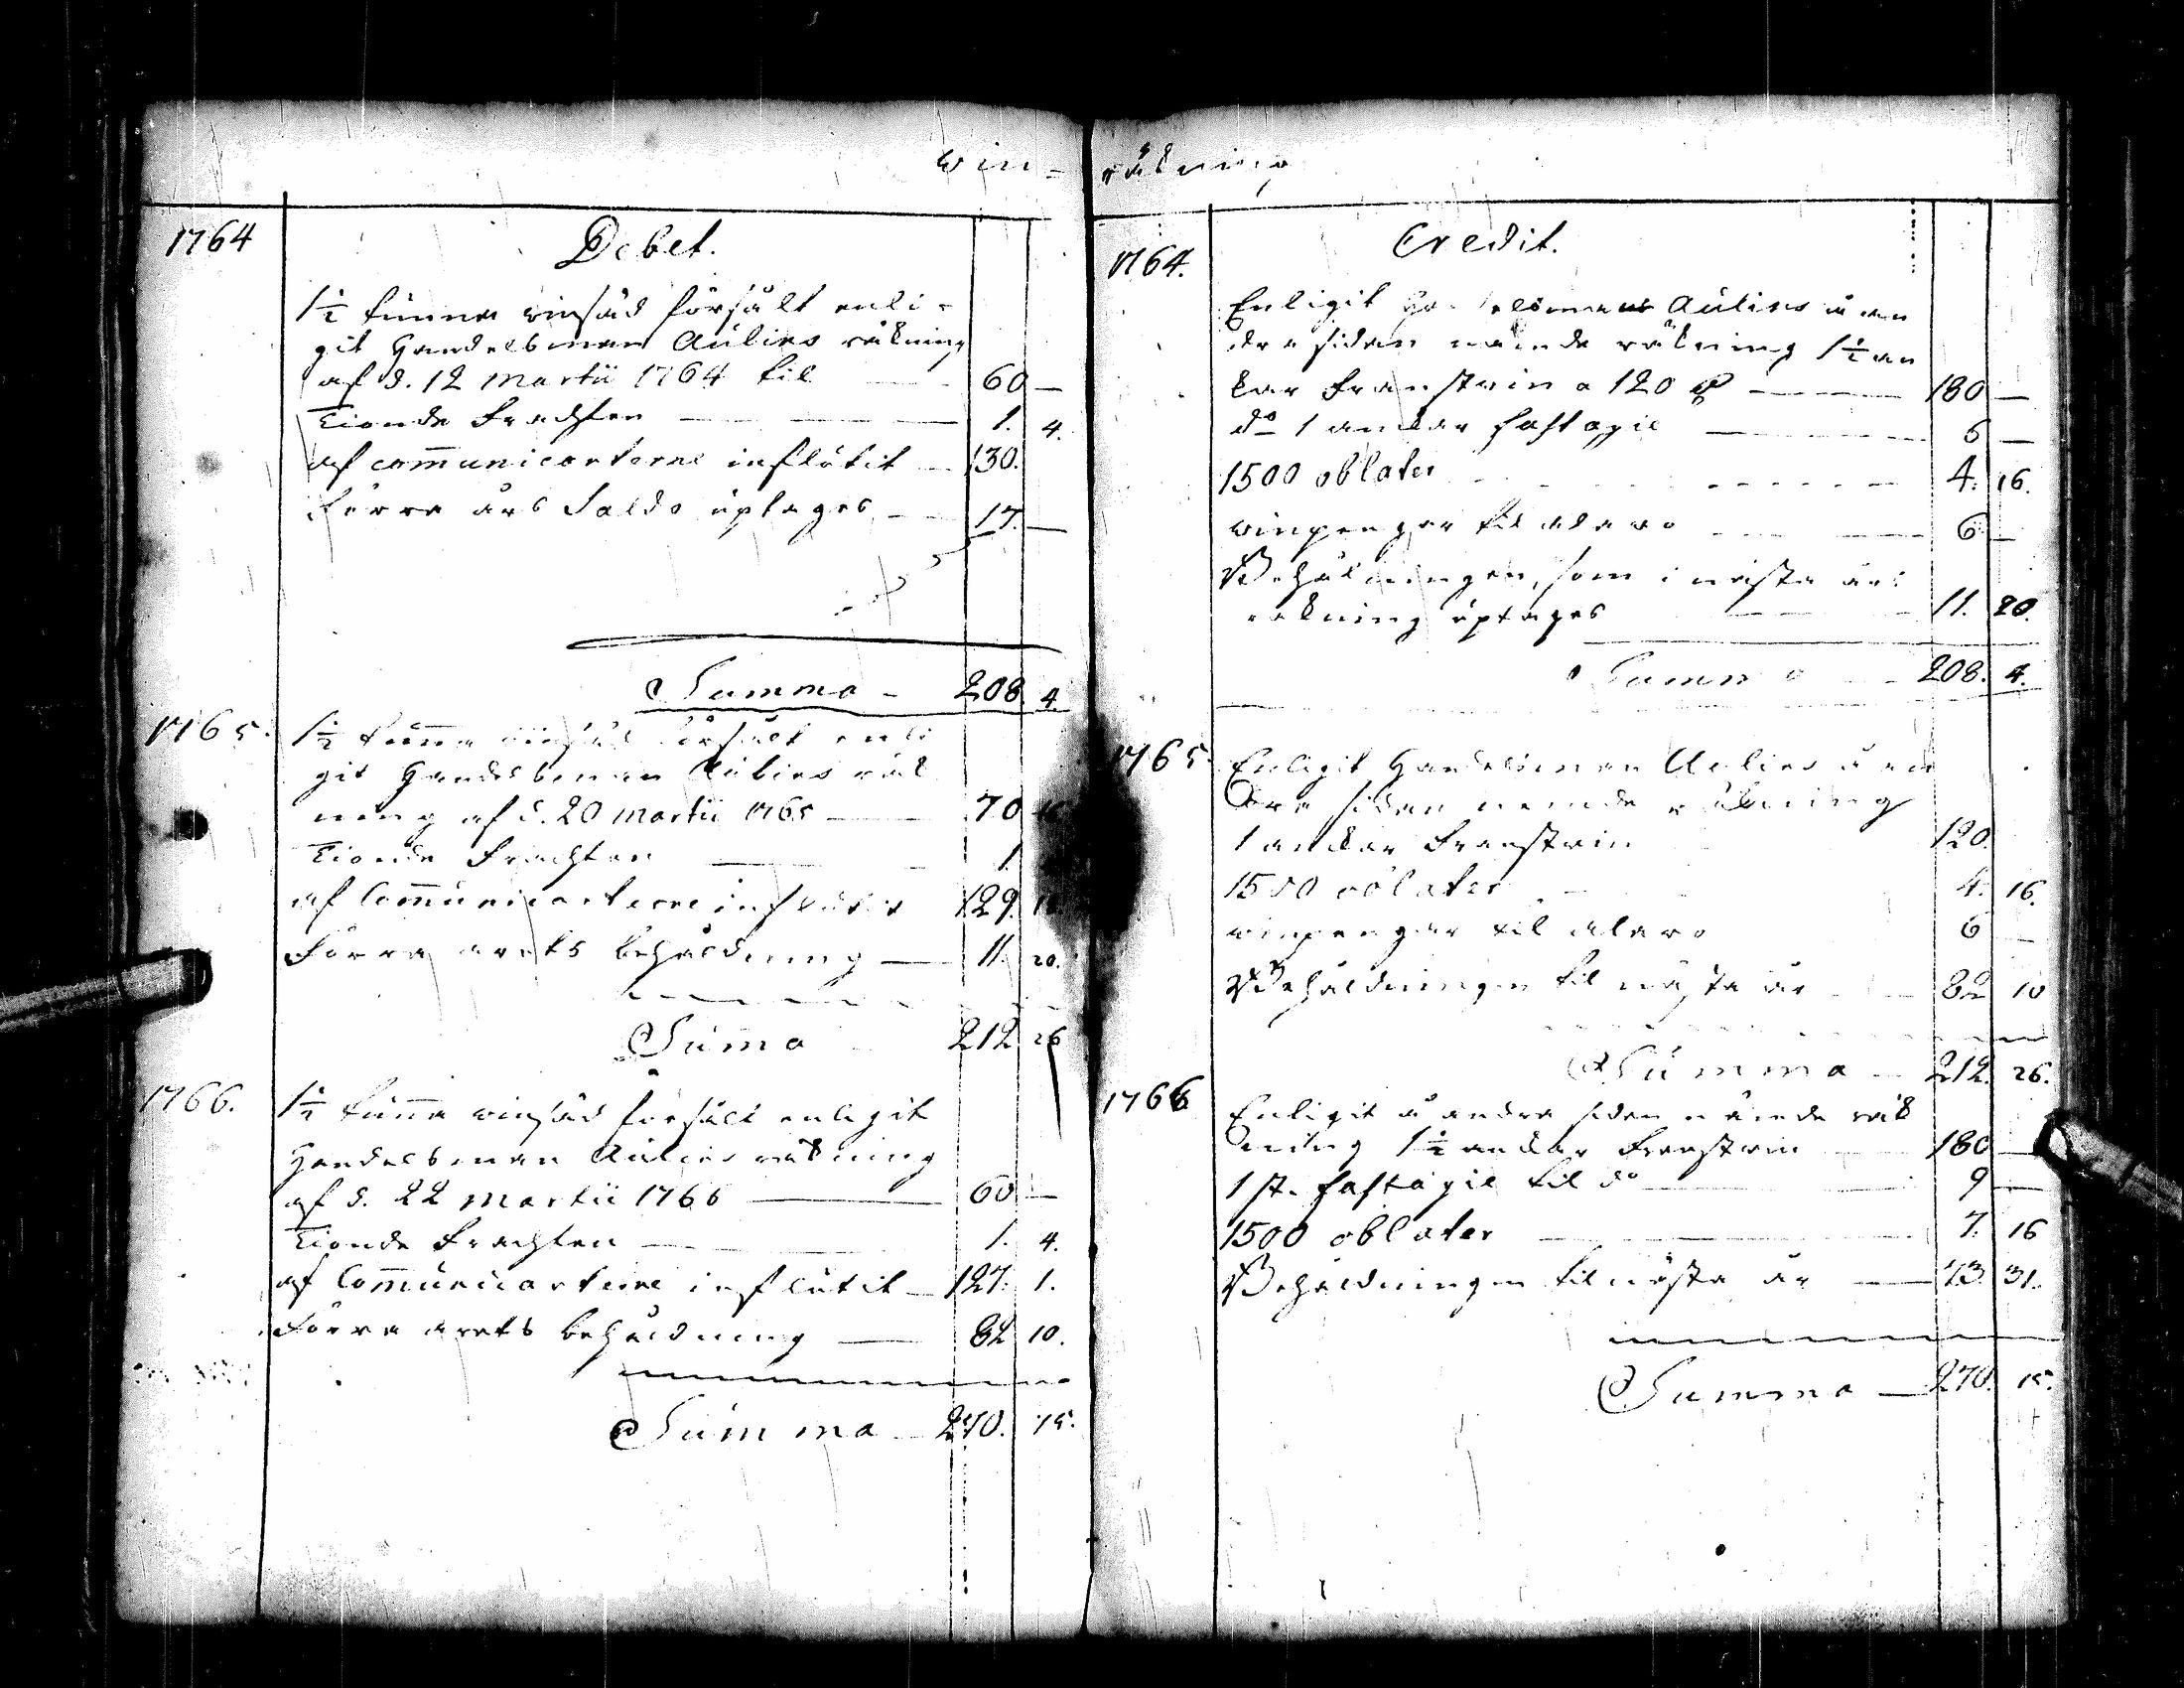 Win-räkning
1764
Debet.
1½ tunna winsäd försålt enli-
git Handelsman Aulins räkning
af d. 12 Martii 1764 til 60 —
Tionde Frachten 1. 4.
af communicanterne influtit 130.
Förra års Saldo uptages 17. —
Summa - 208 4.
1765.
1½ tunna winsäd försålt enli
git Handelsman Aulins räk
ning af d. 20 Martii 1765 70
Tionde Frachten 1
af Communicanterne influtit 129.
Förra årets behåldning 11. 20.
Summa 212 26
1766.
1½ tunna winsäd försålt enligit
Handelsman Aulins räkning
af d. 22 Martii 1766 60 —
Tionde Frachten 1. 4.
af Communicanterne influtit 127. 1.
Förra årets behåldning 82 10.
Summa 270. 15.
1764.
Credit.
Enligit Handelsmans Aulins å an
dra sidan nämde räkning 1½ an
kar Franskwin a 120 180 —
do 1 ankar fastagie 6 —
1500 oblater 4. 16.
winpengar til 6 —
Behålningen, som i nästa års
räkning uptages 11. 20.
Summa 208. 4.
1765.
Enligit Handelsman Aulins å an
dra sidan nemde räkning
1 ankar Franskwin 120.
1500 oblater 4. 16.
winpengar til 6 —
Behåldningen til nästa år 82 10
Summa 212. 26.
1766
Enligit å andra sidan nämde räk
ning 1½ ankar Franskwin 180 —
1 st. fastagie til do 9 —
1500 oblater 7. 16
Behåldningen til nästa år 73. 31.
Summa 270. 15.